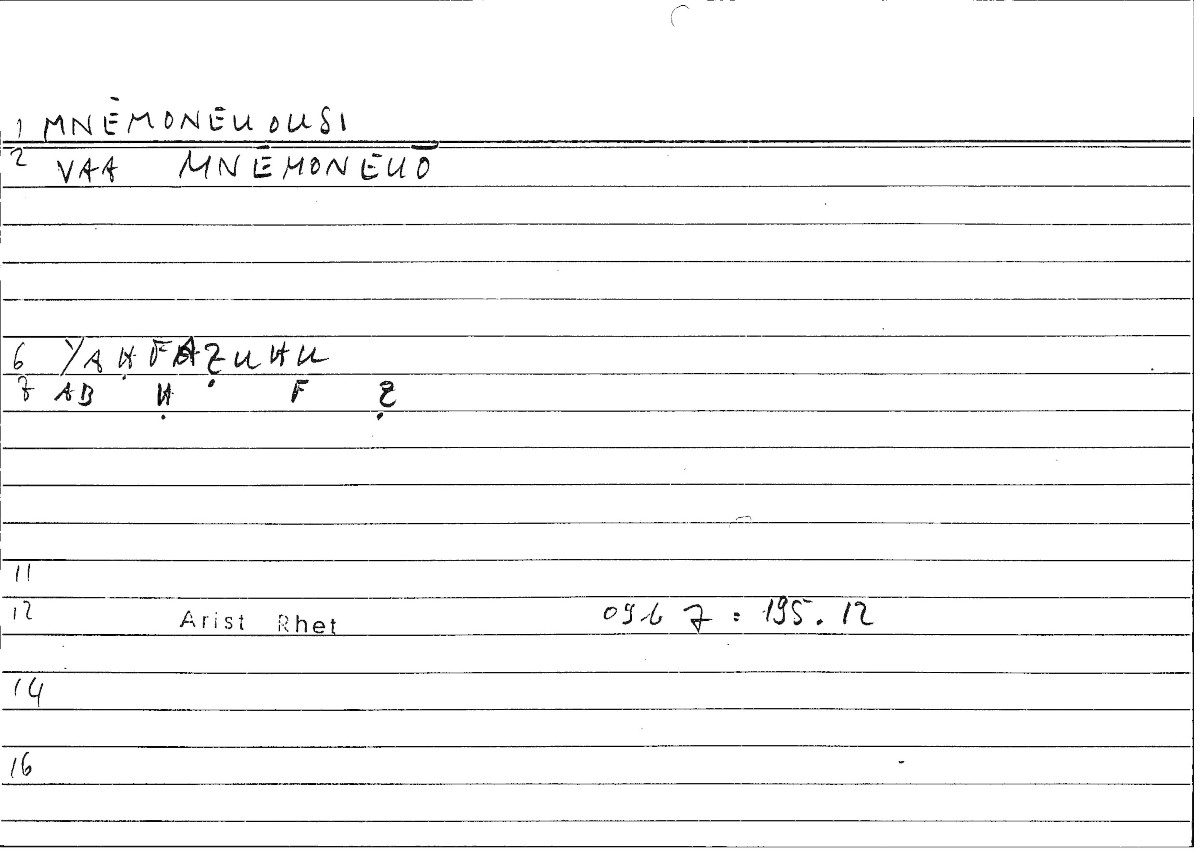 1 MNĒMONEUOUSI
2 VAA MNĒMONEUŌ
6 YAḤFAẒUHU
7 AB Ḥ F Ẓ
11
12 Arist Rhet 09b 7 : 195. 12
14
16